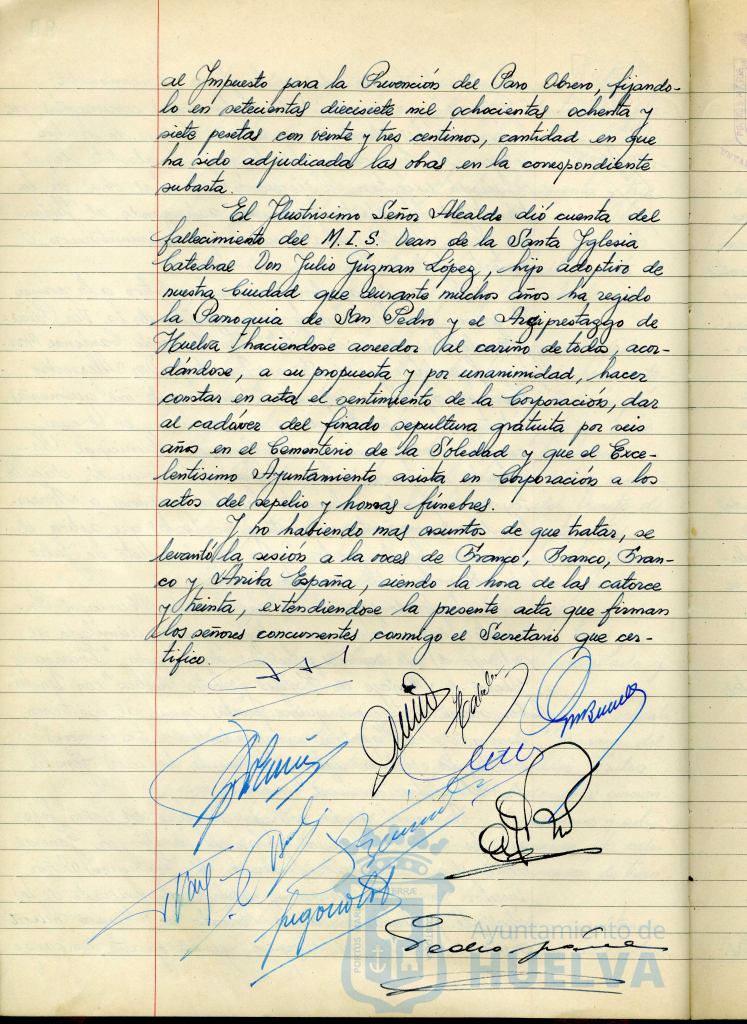 al Impuesto para la Prevención del Paro Obrero, fijando-
lo en setecientas diecisiete mil ochocientas ochenta y
siete pesetas con veinte y tres centimos, cantidad en que
ha sido adjudicada las obras en la correspondiente
subasta.
El Ilustrisimo Señor Alcalde dió cuenta del
fallecimiento del M.I.S. Dean de la Santa Yglesia
Catedral Don Julio Gúzman López, hijo adoptivo de
nuestra Ciudad que durante muchos años ha regido
la Parroquia de San Pedro y el Arciprestazgo de
Huelva haciendose acreedor al cariño de todos, acor-
dándose, a su propuesta y por unanimidad, hacer
constar en acta el sentimiento de la Corporacion, dar
al cadáver del finado sepultura gratuita por seis
años en el Cementerio de la Soledad y que el Exce-
lentisimo Ayuntamiento asista en Corporación a los
actos del sepelio y honras fúnebres.
Y no habiendo mas asuntos de que tratar, se
levantó la sesión a la voces de Franco, Franco, Fran-
co y Arriba España, siendo la hora de las catorce
y treinta, extendiendose la presente acta que firman
los señores concurrentes conmigo el Secretario que cer-
tifico.
Pedro
Ayuntamiento de
HUELVA